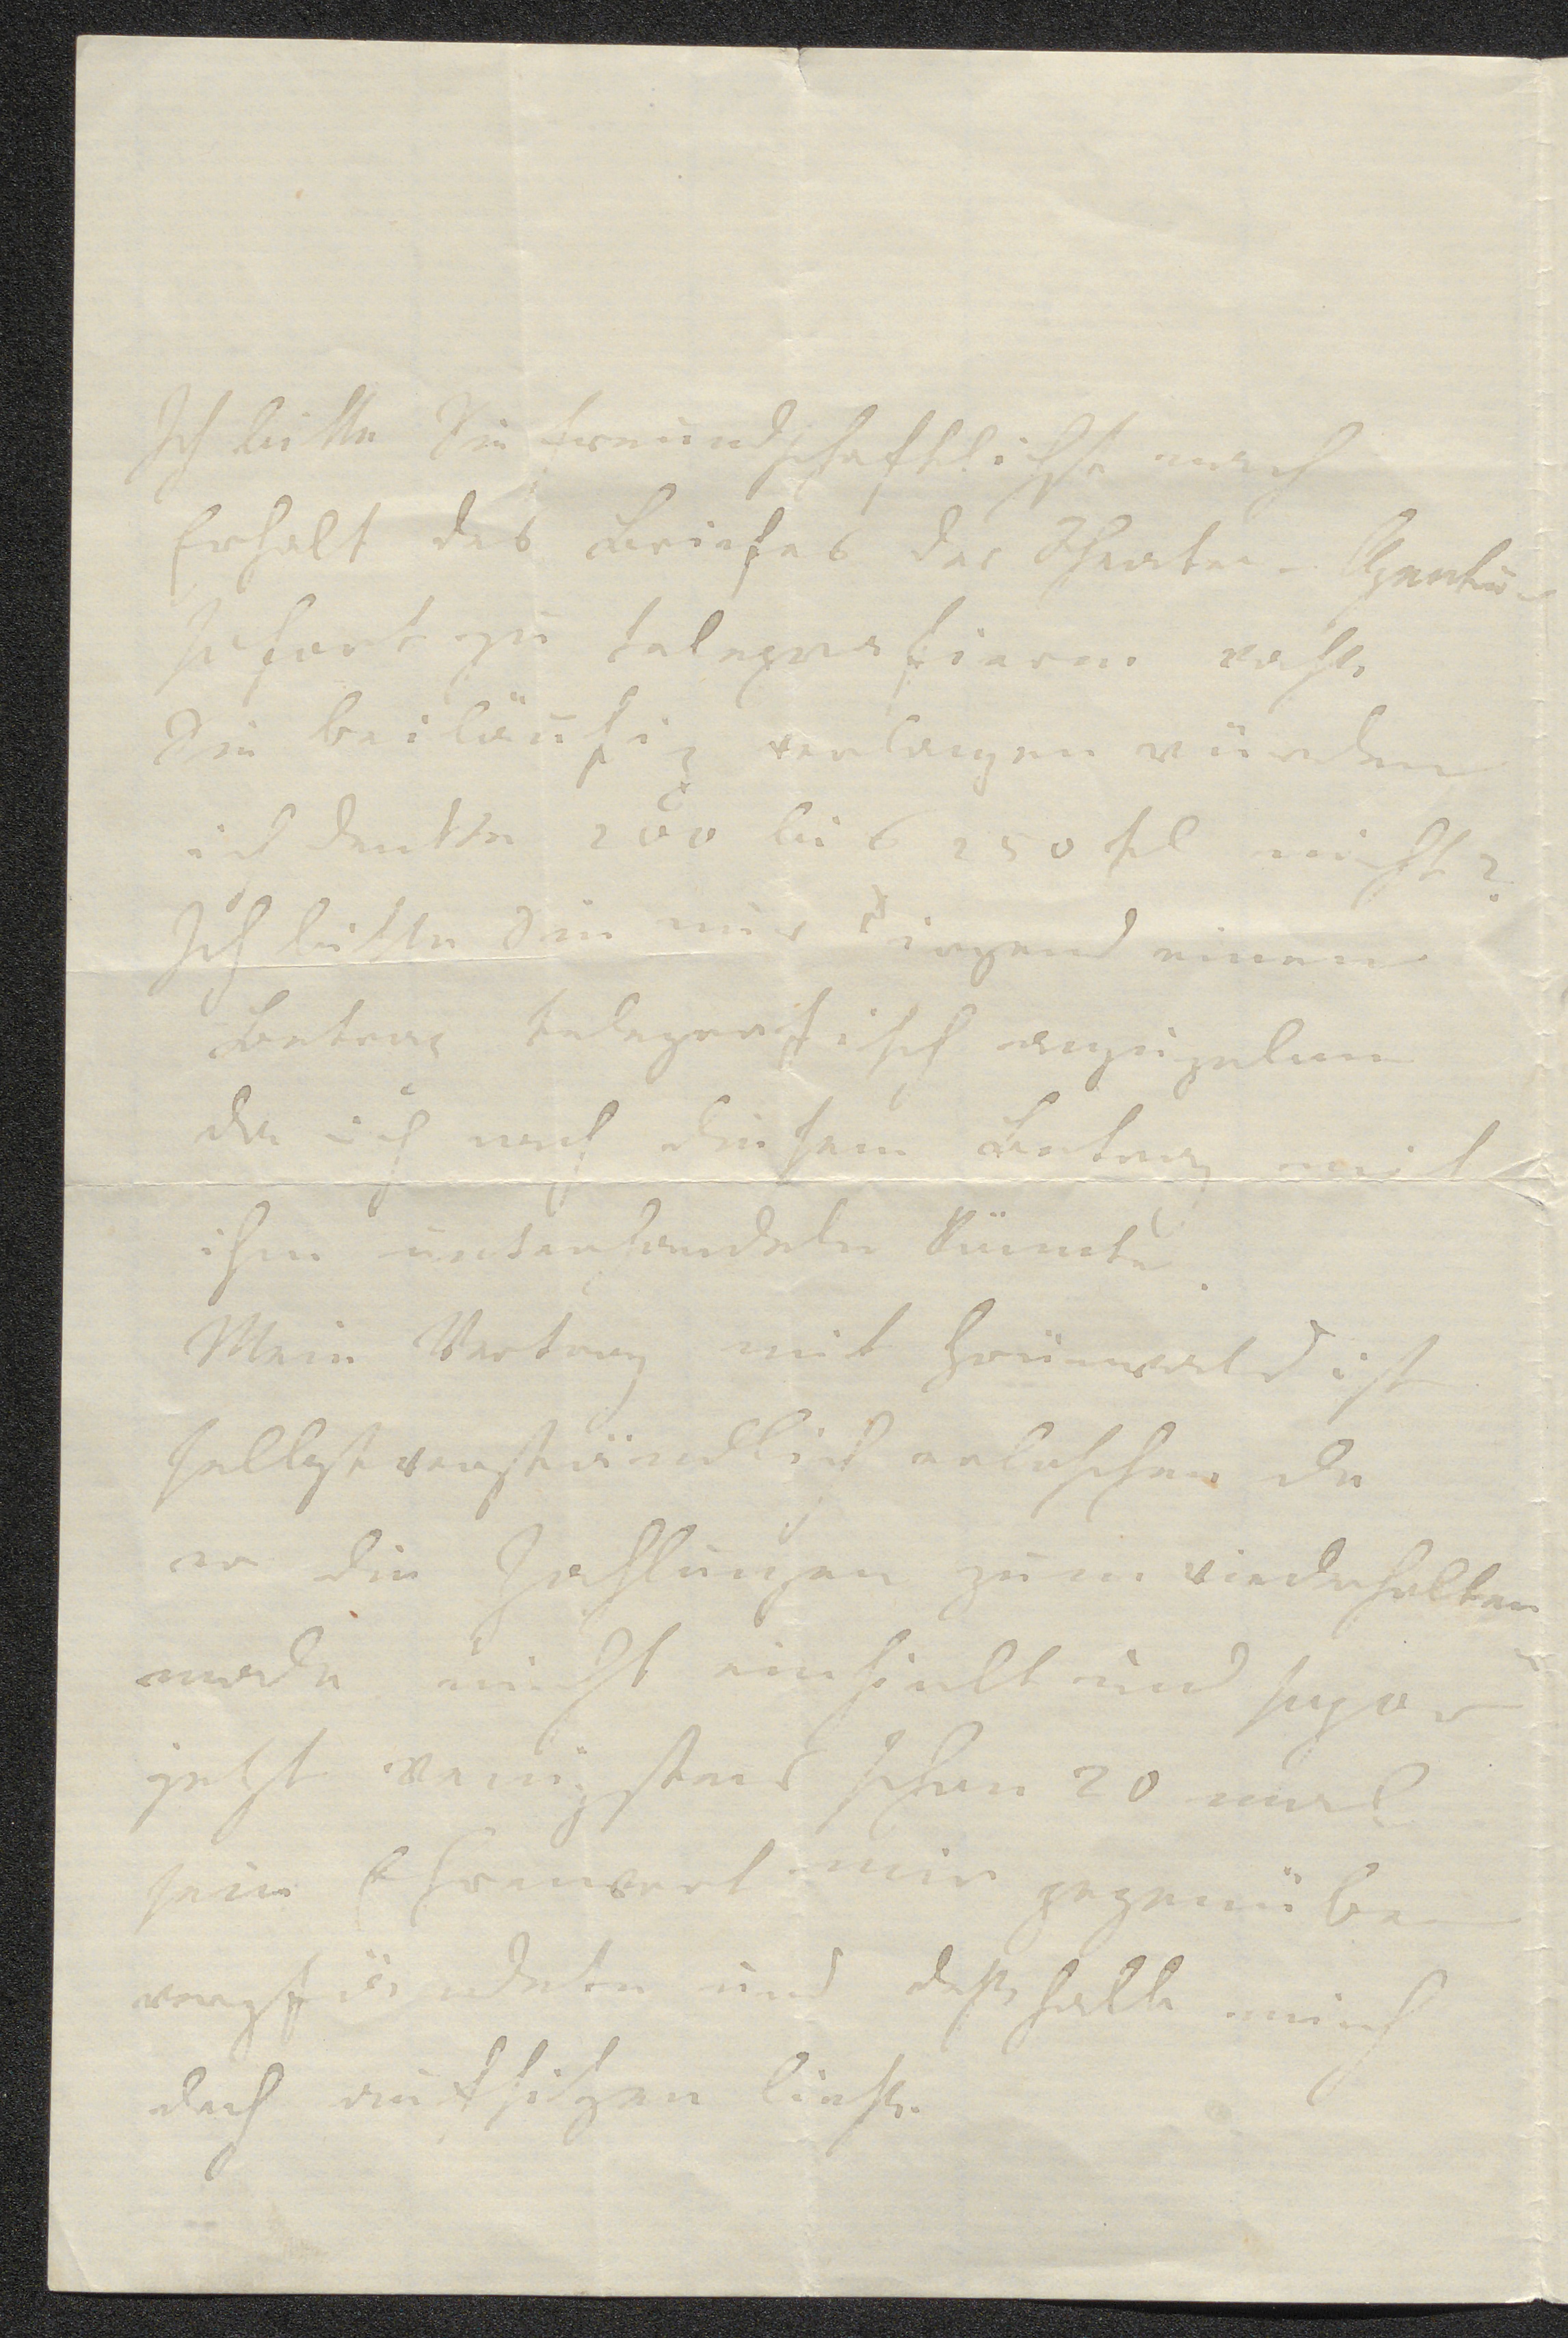 Ich bitte Sie freundschaftlichst nach
Erhalt des Briefes der Theater-Agentur
sofort zu telegrafieren was
Sie beiläufig verlangen würden
ich denke 200 bis 250 fl nicht?
Ich bitte Sie nur irgend einen
Betrag telegrafisch anzugeben
da ich nach diesem Betrag mit
ihm unterhandeln könnte.
Mein Vertrag mit Grünwald ist
selbstverständlich erloschen da
er die Zahlungen zum wiederholten
male nicht einhielt und sogar
jetzt wenigstens schon 20 mal
sein Ehrenwort mir gegenüber
verpfändete und deßhalb mich
doch aufsitzen ließ.